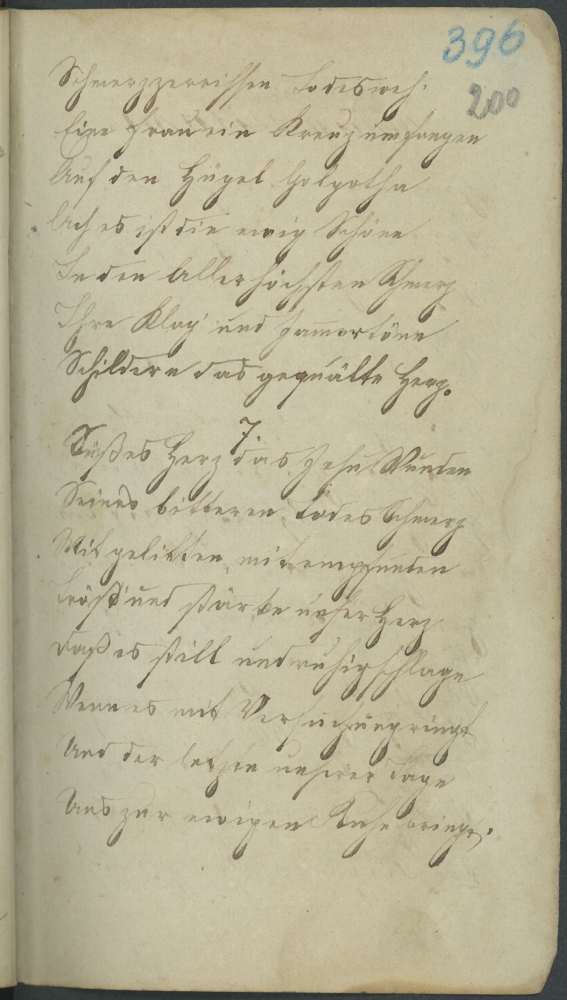 396
200
Schmerzzerrissen Todesweh.
Eine Frau ein Kreuz umfangen
Auf den Hügel Golgotha
Ach es ist die ewig Schöne
In den Allerhöchsten Schmerz
Ihre Klag' und Jamertöne
Schildern das gequälte Herz.
7.
Süßes Herz das Jesu Wunden
Seines bitteren Todes Schmerz
Mit gelitten, mit empfunden
Tröst' und stärke unser Herz
Daß es still und ruhig schlage
Wenn es mit Versuchung ringt
Und der letzte unserer Tage
Uns zur ewigen Ruhe bringt.